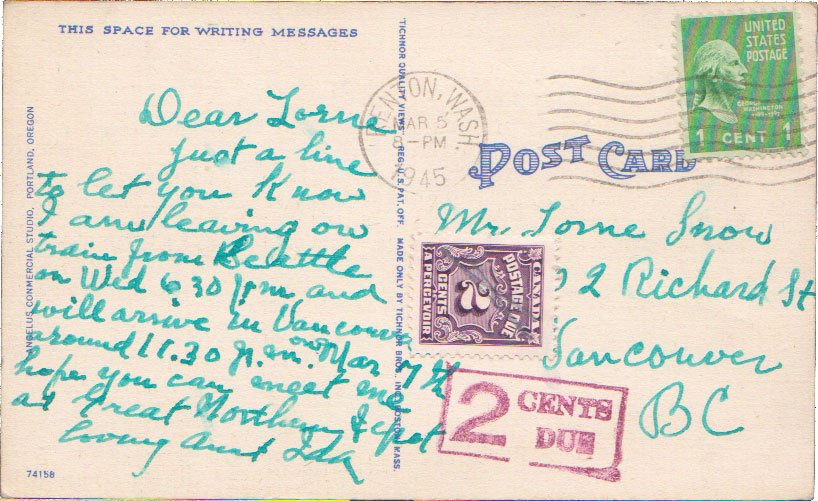 THIS SPACE FOR WRITING MESSAGES
Dear Lorne
just a line
to let you know
I am leaving on
train from Seattle
on Wed 6 30 p.m. and
will arrive in Vancouver
around 11.30 p.m. on Mar 7th
hope you can meet me
at Great Northern depot
loving Aunt Ida
74158
ANGELUS COMMERCIAL STUDIO, PORTLAND, OREGON
TICHNOR QUALITY VIEWS REG. U.S. PAT. OFF. MADE ONLY BY TICHNOR BROS., INC., BOSTON, MASS.
RENTON, WASH.
MAR 5
8-PM
1945
POST CARD
UNITED
STATES
POSTAGE
GEORGE
WASHINGTON
1 CENT 1
Mr. Lorne Snow
2 Richard St
Vancouver
BC
CANADA
POSTAGE DUE
2
CENTS
A PERCEVOIR
2 CENTS
DUE